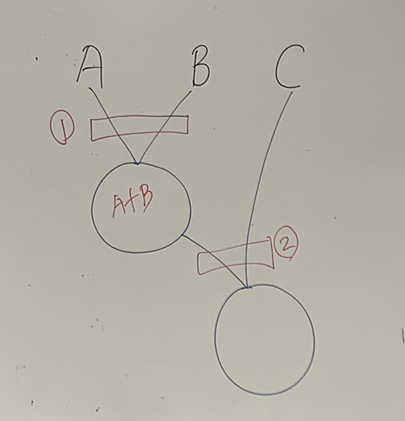 A B C
1
A+B
2